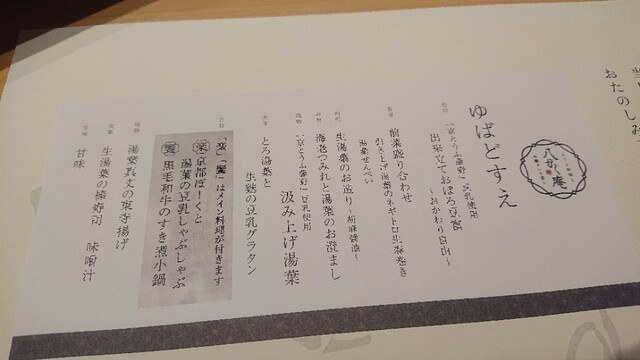 おたのしみ
八かく庵
ゆばどすえ
「京とうふ藤野」豆乳使用
出来立ておぼろ豆富 〜おかわり自由〜
前菜盛り合わせ
引き上げ湯葉のネギトロ生春巻き
湯葉せんべい
生湯葉のお造り
海老つみれと湯葉のお澄まし
「京とうふ藤野」豆乳使用
汲み上げ湯葉
とろ湯葉と
生麩の豆乳グラタン
はメイン料理が付きます
京都ぽーくと
湯葉の豆乳しゃぶしゃぶ
黒毛和牛のすき煮小鍋
湯葉真丈の東寺揚げ
生湯葉の棒寿司 味噌汁
甘味